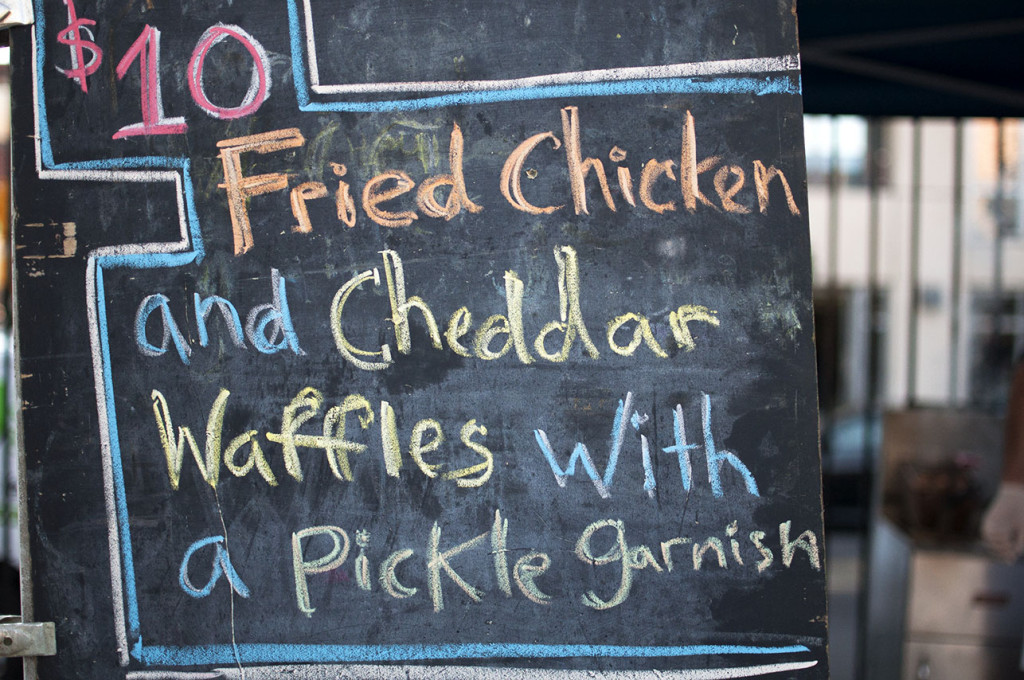 $10
Fried Chicken
and Cheddar
Waffles With
a Pickle garnish